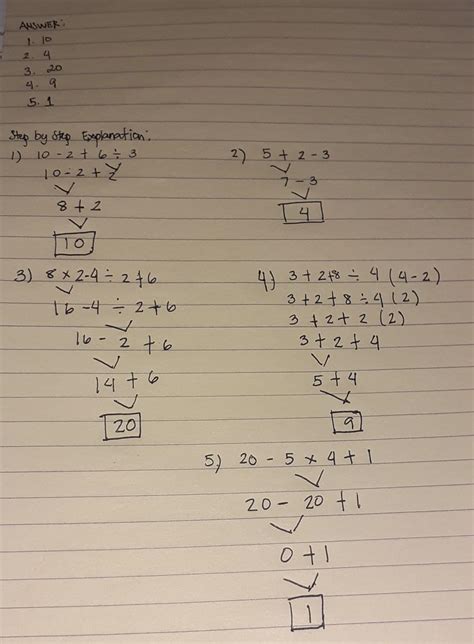 ANSWER:
1. 10
2. 4
3. 20
4. 9
5. 1
Step by Step Explanation:
1) 10 - 2 + 6 ÷ 3
10 - 2 + 2
8 + 2
10
2) 5 + 2 - 3
7 - 3
4
3) 8 × 2 - 4 ÷ 2 + 6
16 - 4 ÷ 2 + 6
16 - 2 + 6
14 + 6
20
4) 3 + 2 + 8 ÷ 4 (4 - 2)
3 + 2 + 8 ÷ 4 (2)
3 + 2 + 2 (2)
3 + 2 + 4
5 + 4
9
5) 20 - 5 × 4 + 1
20 - 20 + 1
0 + 1
1